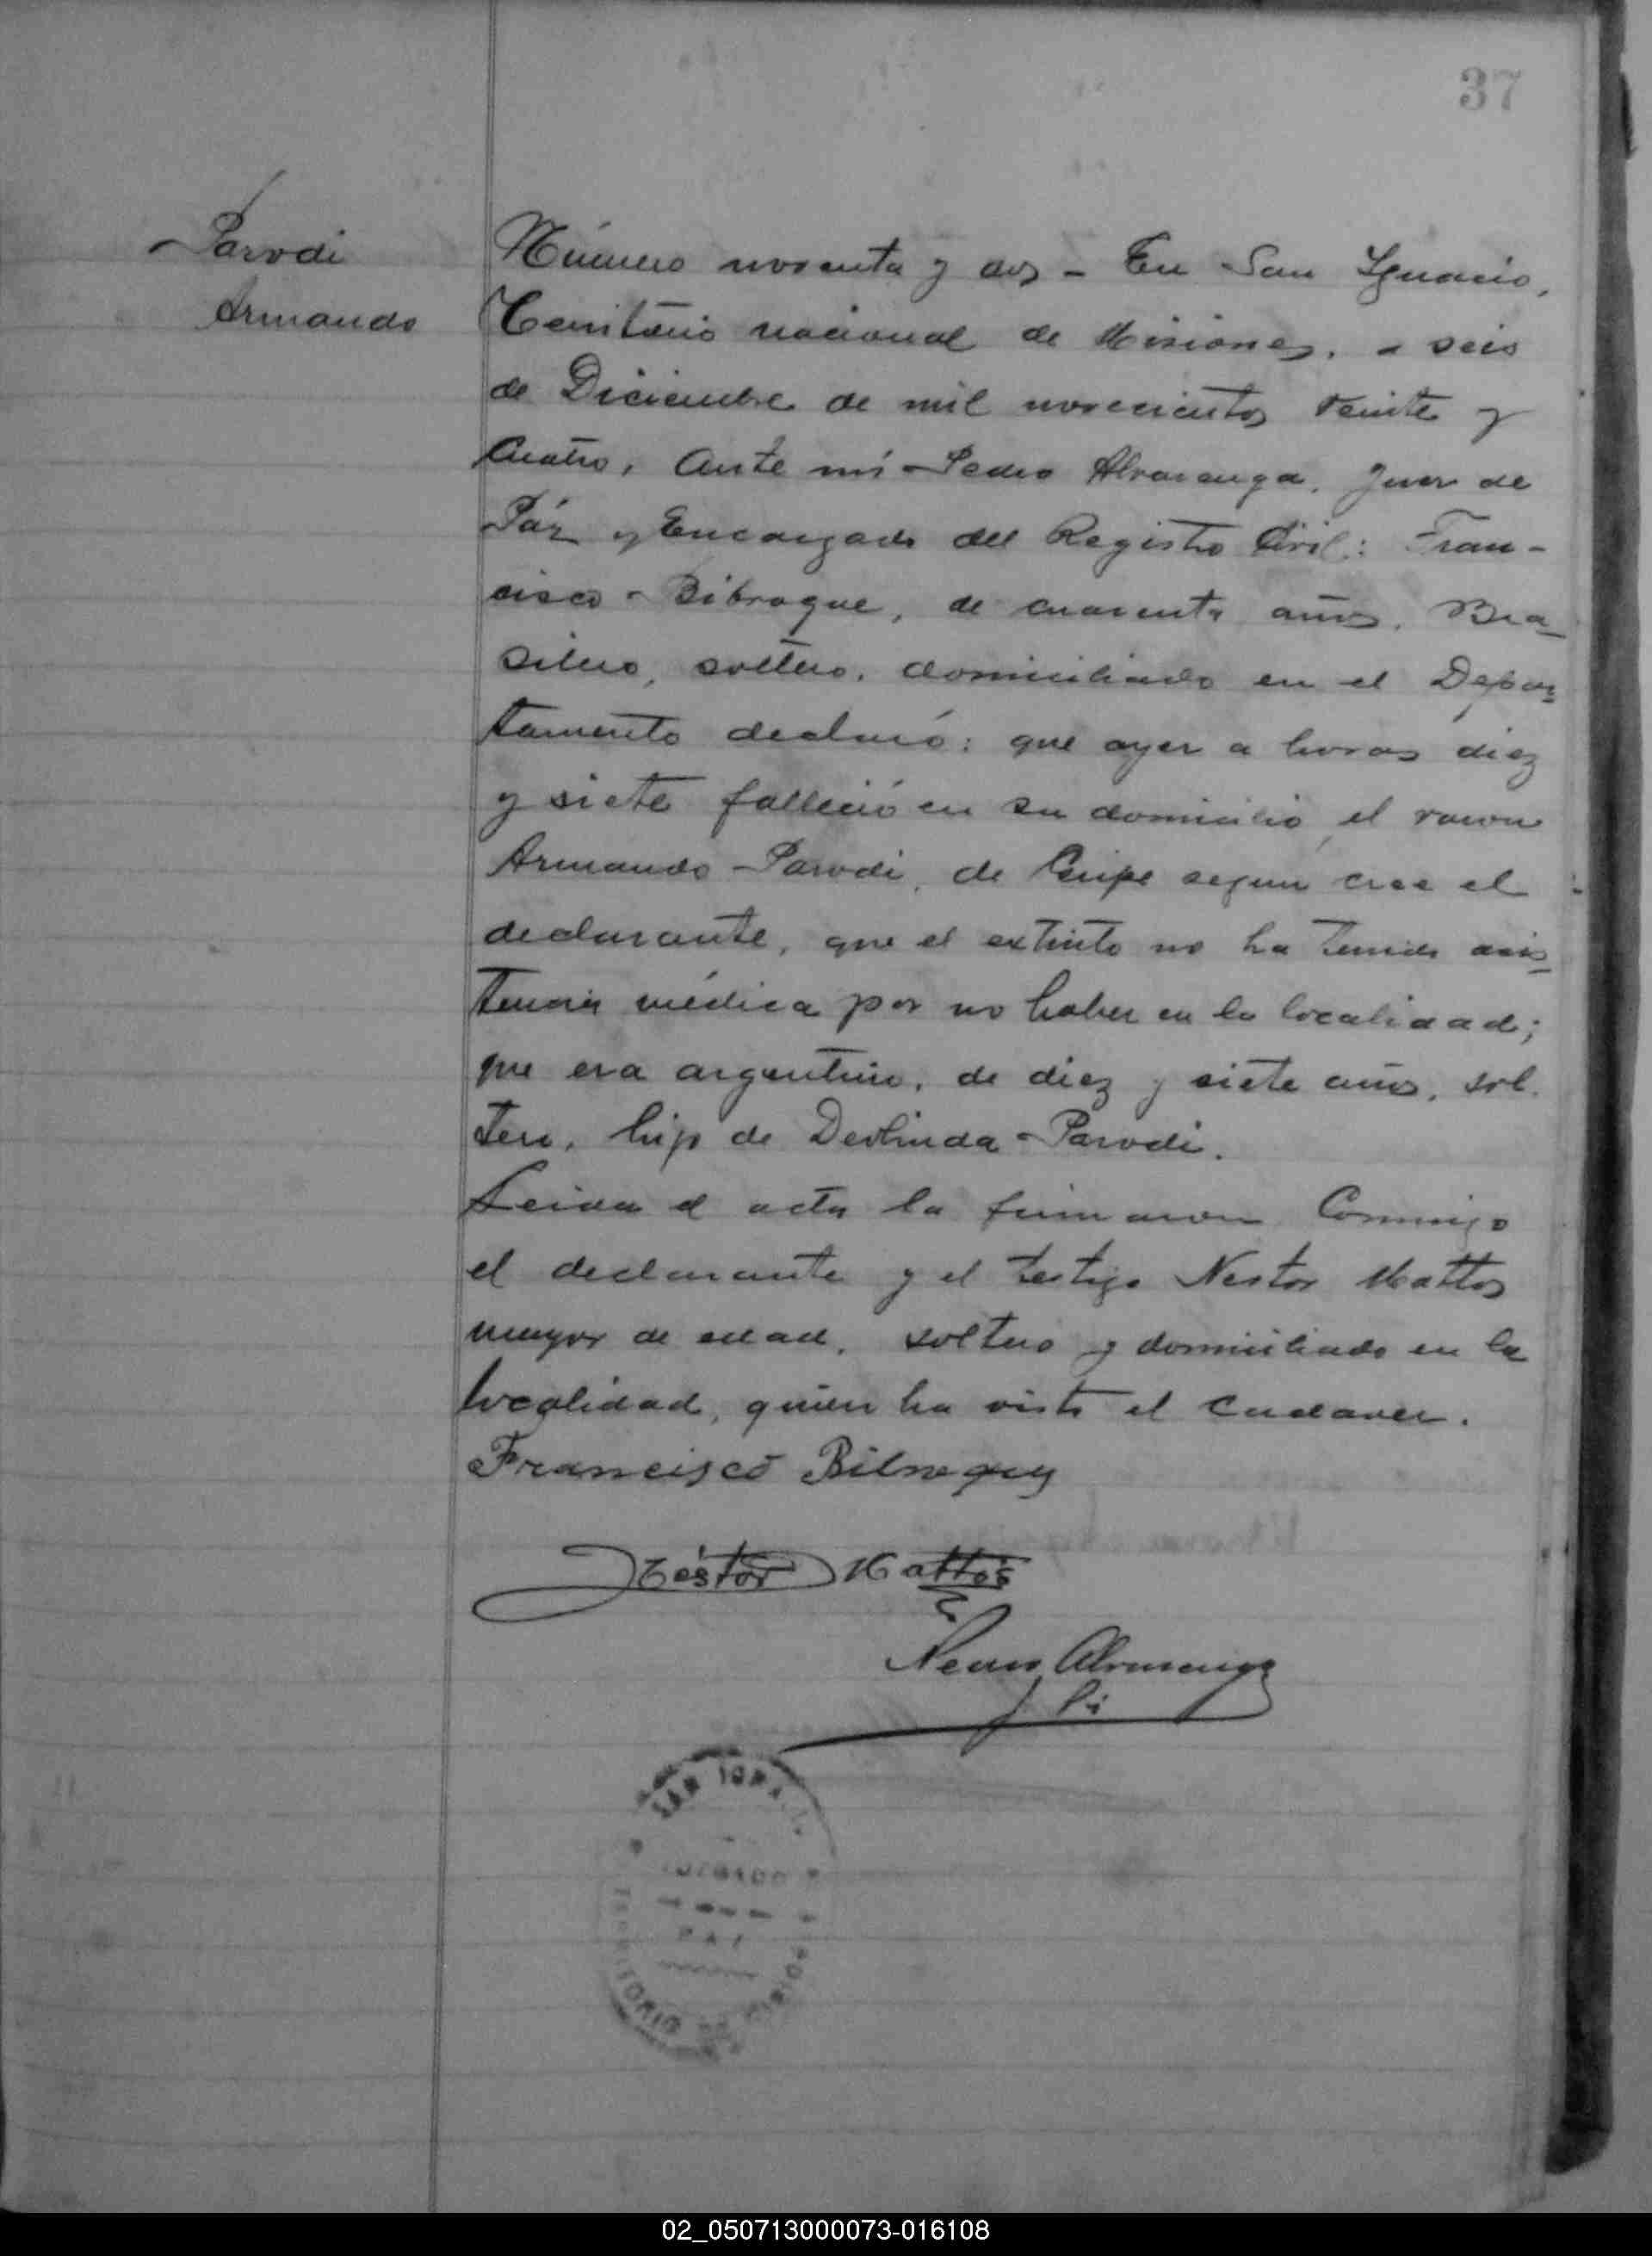 37
Parodi
Armando
Número noventa y dos - En San Ignacio,
Territorio nacional de Misiones, a seis
de Diciembre de mil novecientos veinte y
cuatro, ante mí Pedro Alvarenga, Juez de
Páz y Encargado del Registro Civil: Fran-
cisco Bibraque, de cuarenta años, Bra-
silero, soltero, domiciliado en el Depar-
tamento declaró: que ayer a horas diez
y siete falleció en su domicilio el varon
Armando Parodi, de Gripe segun cree el
declarante, que el extinto no ha tenido asis-
tencia médica por no haber en la localidad;
que era argentino, de diez y siete años, sol
tero, hijo de Deolinda Parodi.
Leida el acta la firmaron Conmigo
el declarante y el testigo Nestor Mattos
mayor de edad, soltero y domiciliado en la
localidad, quien ha visto el cadaver.
Francisco
Néstor Mattos
Pedro Alvarenga
SAN IGNA
JUZGADO
PAZ
TERRITORIO
02_050713000073-016108